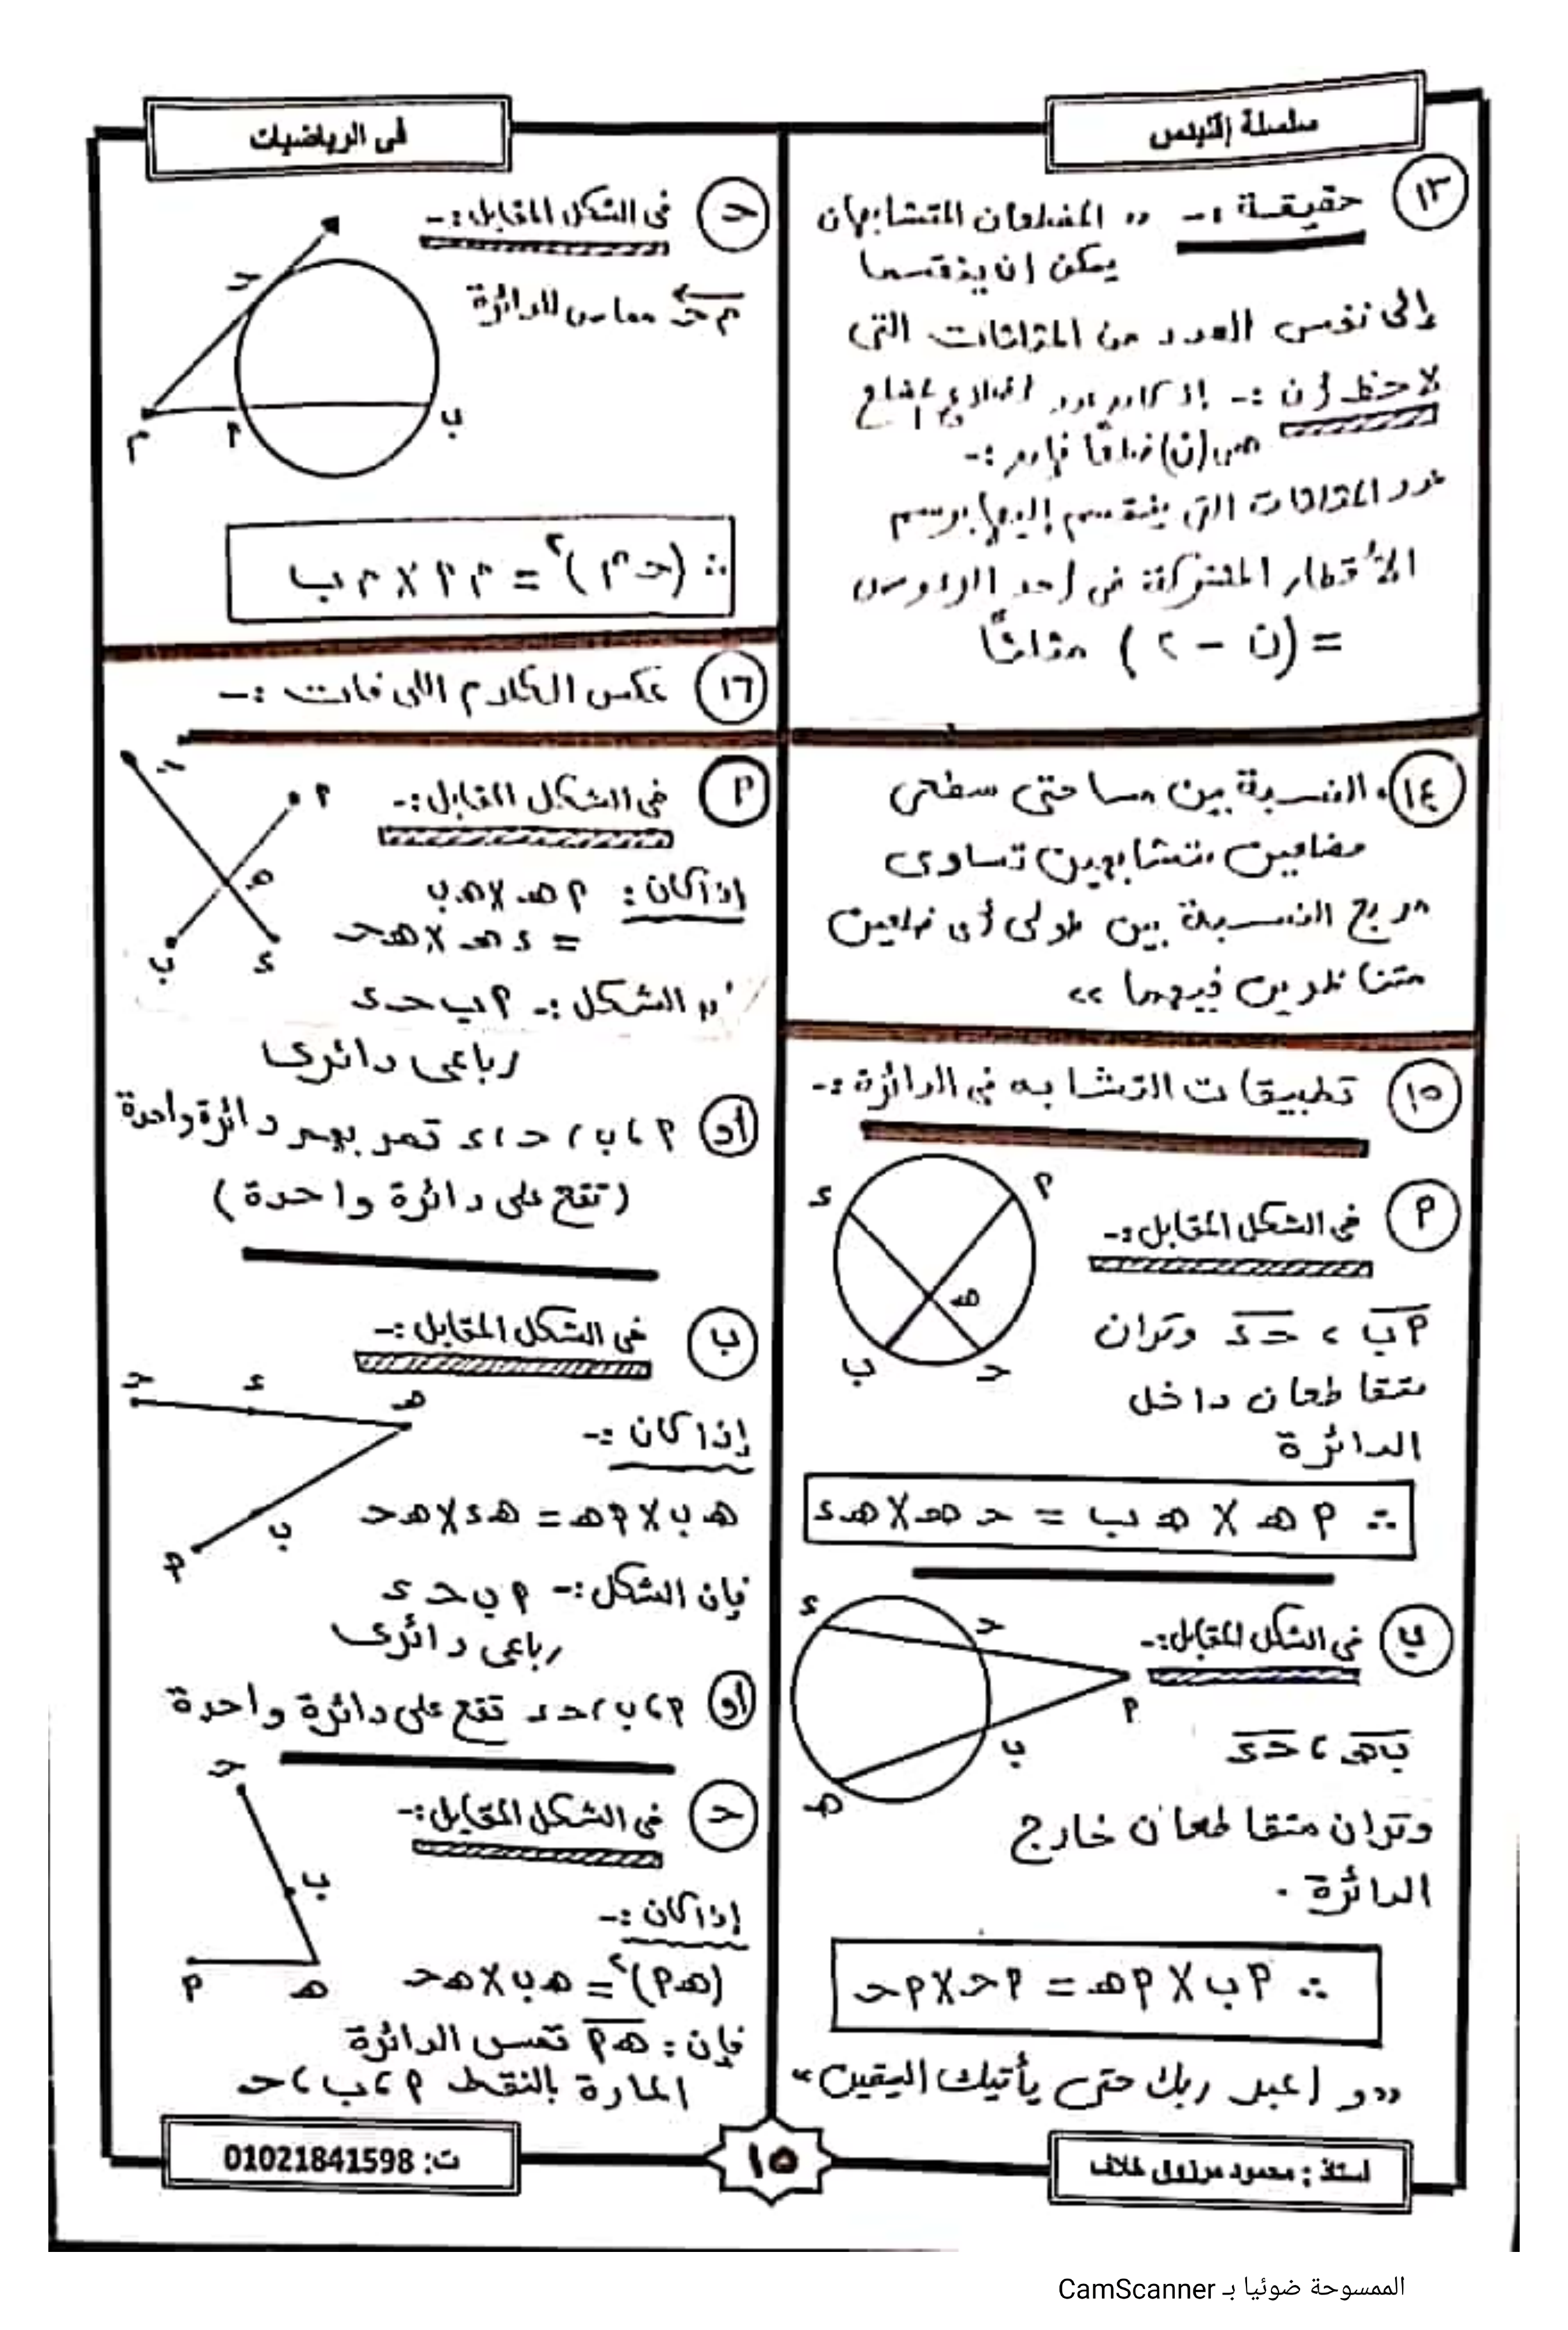 سلسلة إقليدس
فى الرياضيات
١٣
حقيقة :- ,, المضلعان المتشابهان
يمكن أن ينقسما
إلى نفس العدد من المثلثات التى
لاحظ أن :- إذا كان عدد أضلاع
(ن) ضلعًا فإن :-
عدد المثلثات التى ينقسم إليها برسم
الأقطار المشتركة فى أحد الرءوس
= (ن - ٢) مثلثًا
١٤ النسبة بين مساحتى سطحى
مضلعين متشابهين تساوى
مربع النسبة بين طولى أى ضلعين
متناظرين فيهما ,,
١٥ تطبيقات التشابه فى الدائرة :-
٩ فى الشكل المقابل :-
ء
٩
هـ
ب
حـ
٩ب ، حـء وتران
متقاطعان داخل
الدائرة
∴ ٩هـ × هـب = حـهـ × هـء
ب فى الشكل المقابل :-
ء
حـ
٩
ب
هـ
بهـ ، حـء
وتران متقاطعان خارج
الدائرة .
∴ ٩ب × ٩هـ = ٩حـ × ٩حـ
,, و اعبد ربك حتى يأتيك اليقين ,,
حـ فى الشكل المقابل :-
حـ
م
٩
ب
محـ مماس للدائرة
∴ (حـم)٢ = م٩ × مب
١٦ عكس الكلام اللى فات :-
٩ فى الشكل المقابل :-
حـ
٩
هـ
ب
ء
إذا كان : ٩هـ × هـب
= ءهـ × هـحـ
الشكل :- ٩ب حـء
رباعى دائرى
أو ٩ ، ب ، حـ ، ء تمر بهم دائرة واحدة
(تقع على دائرة واحدة)
ب فى الشكل المقابل :-
حـ
ء
هـ
ب
٩
إذا كان :-
هـب × ٩هـ = هـء × هـحـ
فإن الشكل :- ٩ب حـء
رباعى دائرى
أو ٩ ، ب ، حـ ، ء تقع على دائرة واحدة
حـ فى الشكل المقابل :-
حـ
ب
٩
هـ
إذا كان :-
(هـ٩)٢ = هـب × هـحـ
فإن : هـ٩ تمس الدائرة
المارة بالنقط ٩ ، ب ، حـ
ت: 01021841598
١٥
أستاذ : محمود مرزوق خلاف
الممسوحة ضوئيا بـ CamScanner